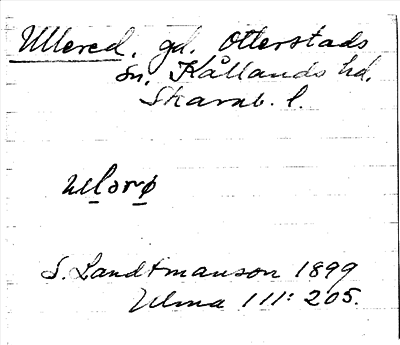 Ullered, gd. Otterstads
sn, Kållands hd.
Skarab. l.
ulørø
S. Landtmanson 1899
Ulma 111: 205.